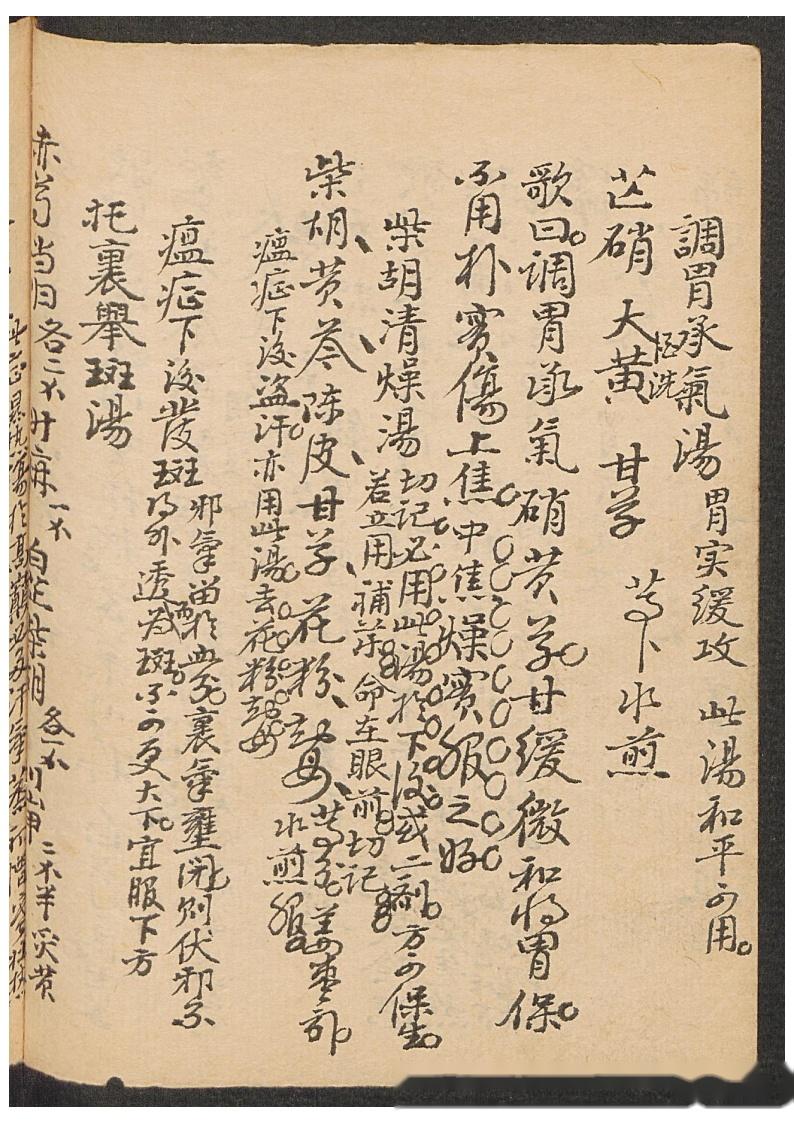 調胃承氣湯 胃实緩攻 此湯和平可用
芒硝 大黄 酒洗 甘草 等卜水煎
歌曰調胃承氣硝黄草甘緩微和將胃保
不用朴實傷上焦中焦燥實服之好
柴胡清燥湯 切記必用此湯於下後或二劑方可保生
若立用補藥命在眼前切記
柴胡黄芩陈皮甘草花粉知母等卜姜枣引
水煎服
瘟症下後盗汗亦用此湯去花粉知母
瘟症下後發斑 邪氣留於血分裏氣壅閉則伏邪不
得外透而為斑不可更大下宜服下方
托裏舉斑湯
赤芍当归各二 升麻一 白芷柴胡各一 山甲二 半炙黄